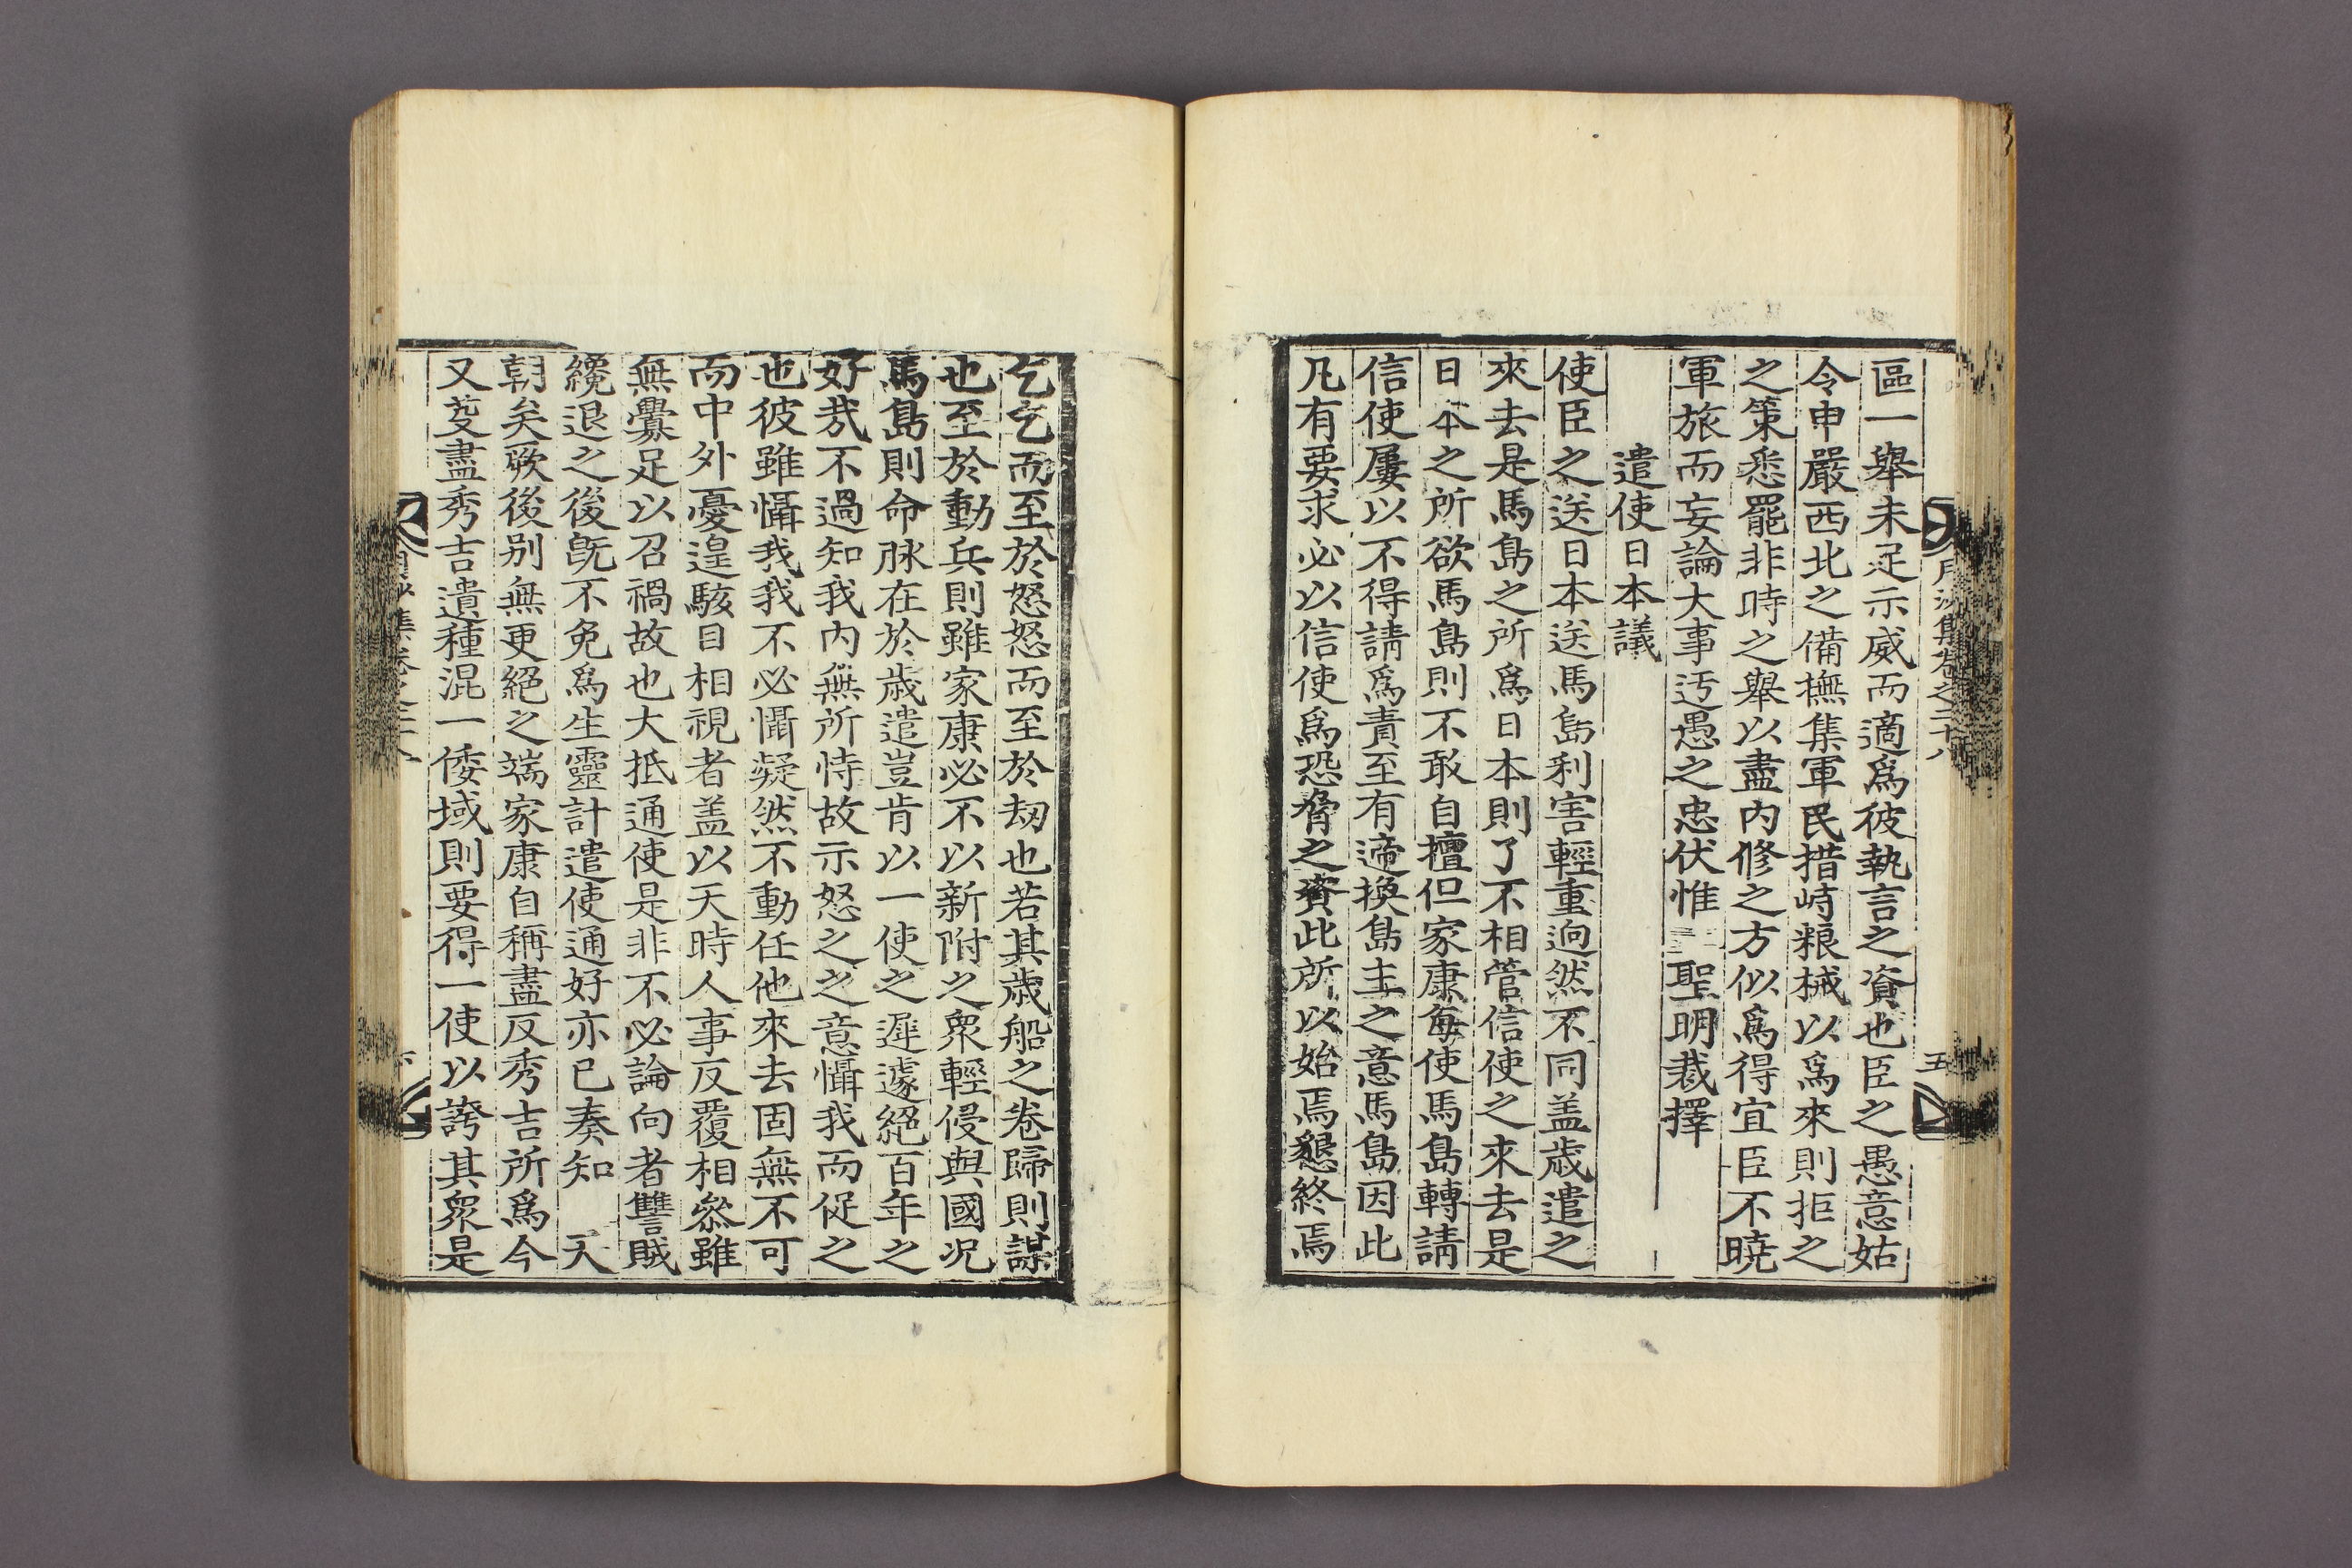 區一擧未足示威而適爲彼執言之資也臣之愚意姑
令申嚴西北之備撫集軍民措峙粮械以爲來則拒之
之策悉罷非時之擧以盡内修之方似爲得宜臣不曉
軍旅而妄論大事迂愚之忠伏惟 聖明裁擇
遣使日本議
使臣之送日本送馬島利害輕重逈然不同盖歲遣之
來去是馬島之所爲日本則了不相管信使之來去是
日本之所欲馬島則不敢自擅但家康每使馬島轉請
信使屢以不得請爲責至有遞換島主之意馬島因此
凡有要求必以信使爲恐脅之資此所以始焉懇終焉
乞乞而至於怒怒而至於刼也若其歲船之卷歸則謀
也至於動兵則雖家康必不以新附之衆輕侵與國况
馬島則命脉在於歲遣豈肯以一使之遲遽絕百年之
好㢤不過知我内無所恃故示怒之之意懾我而促之
也彼雖懾我我不必懾凝然不動任他來去固無不可
而中外憂遑駭目相視者盖以天時人事反覆相叅雖
無釁足以召禍故也大抵通使是非不必論向者讐賊
纔退之後旣不免爲生靈計遣使通好亦已奏知 天
朝矣厥後别無更絕之端家康自稱盡反秀吉所爲今
又芟盡秀吉遺種混一倭域則要得一使以誇其衆是
月沙集卷之三十八
五